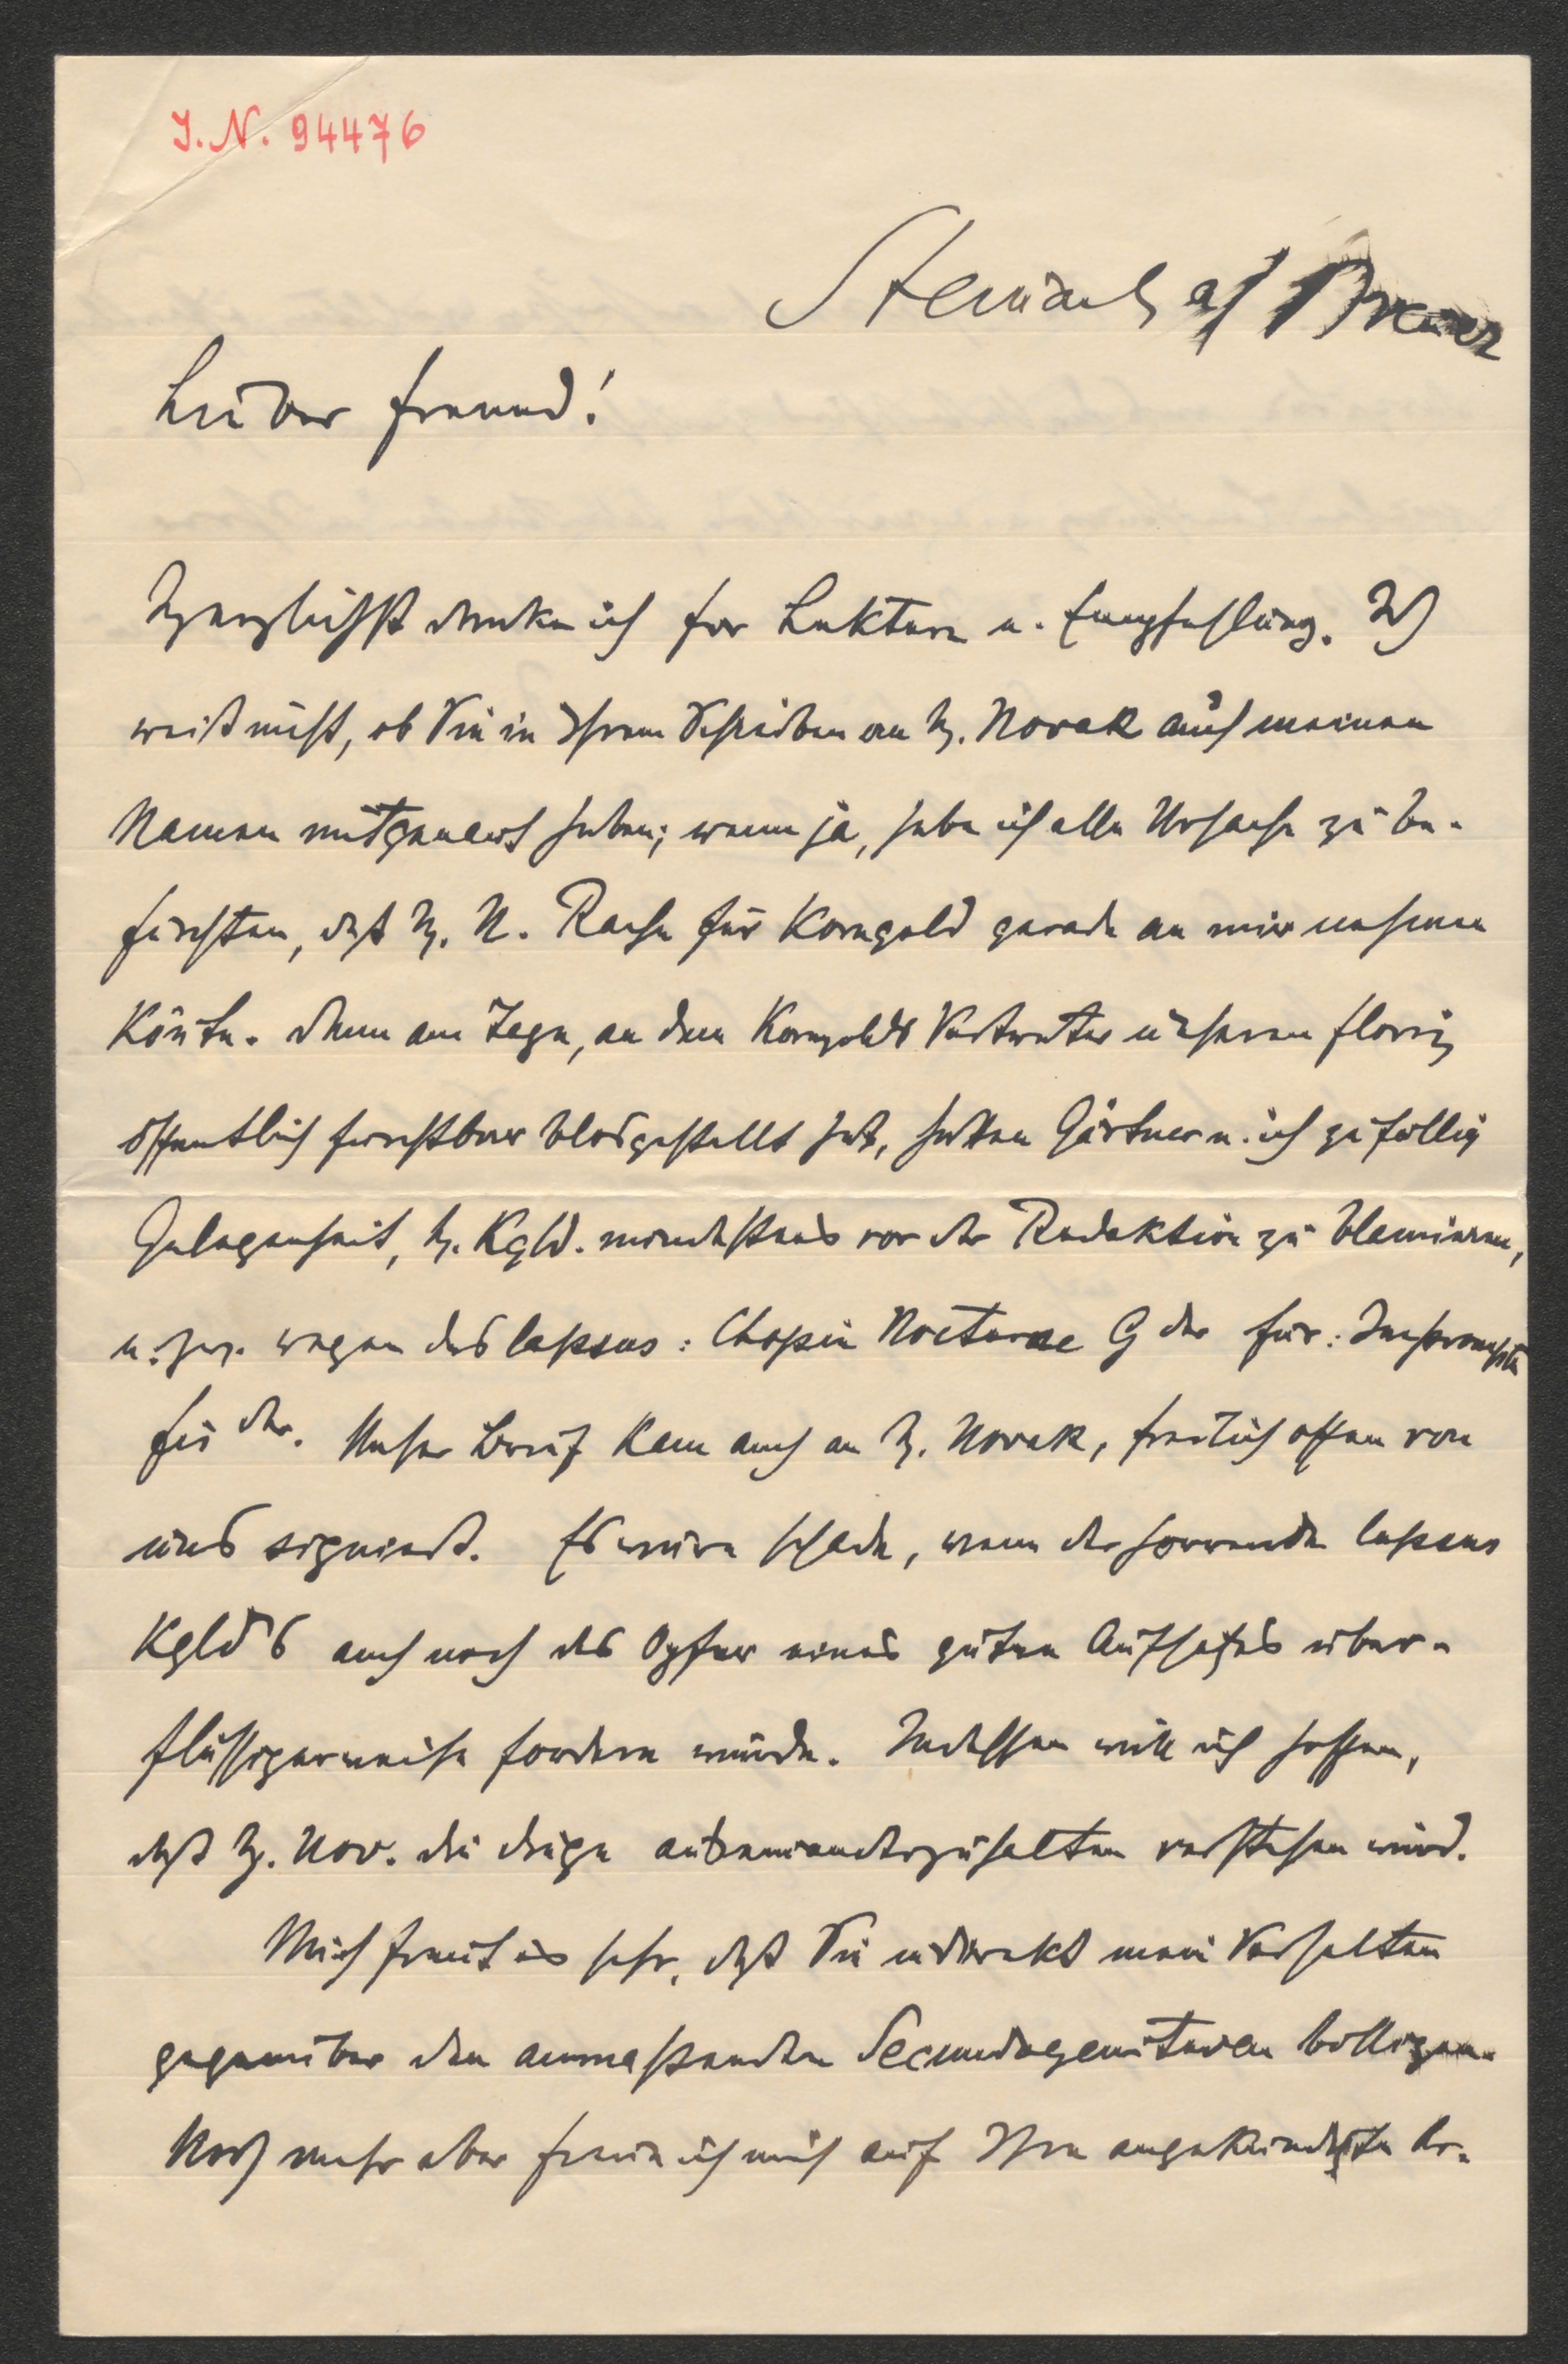 I.N. 94476
Steinach a/ Brenner
Lieber Freund!
Herzlichst danke ich für Lektüre u. Empfehlung. Ich
weiß nicht, ob Sie in Ihrem Schreiben an H. Novak auch meinen
Namen mitgenannt haben; wenn ja, habe ich alle Ursache zu be-
fürchten, daß H. N. Rache für Korngold gerade an mir nehmen
könnte. Denn am Tage, an dem Korngolds Vertreter unseren Floriz
öffentlich furchtbar blosgestellt hat, hatten Gärtner u. ich zufällig
Gelegenheit, H. Kgld. mindestens vor der Redaktion zu blamieren,
u. zw. wegen des lapsus: Chopin Nocturne G dur für: Impromptu
Fis dur. Unser Brief kam auch an H. Novak, freilich offen von
uns signiert. Es wäre schade, wenn der horrende lapsus
Kgld's auch noch das Opfer eines guten Aufsatzes über-
flüssigerweise fordern würde. Indessen will ich hoffen,
daß H. Nov. die Dinge auseinanderzuhalten verstehen wird.
Mich freut es sehr, daß Sie indirekt mein Verhalten
gegenüber den anmaßenden Secundogenituren billigen.
Noch mehr aber freue ich mich auf Ihre angekündigte Ar-